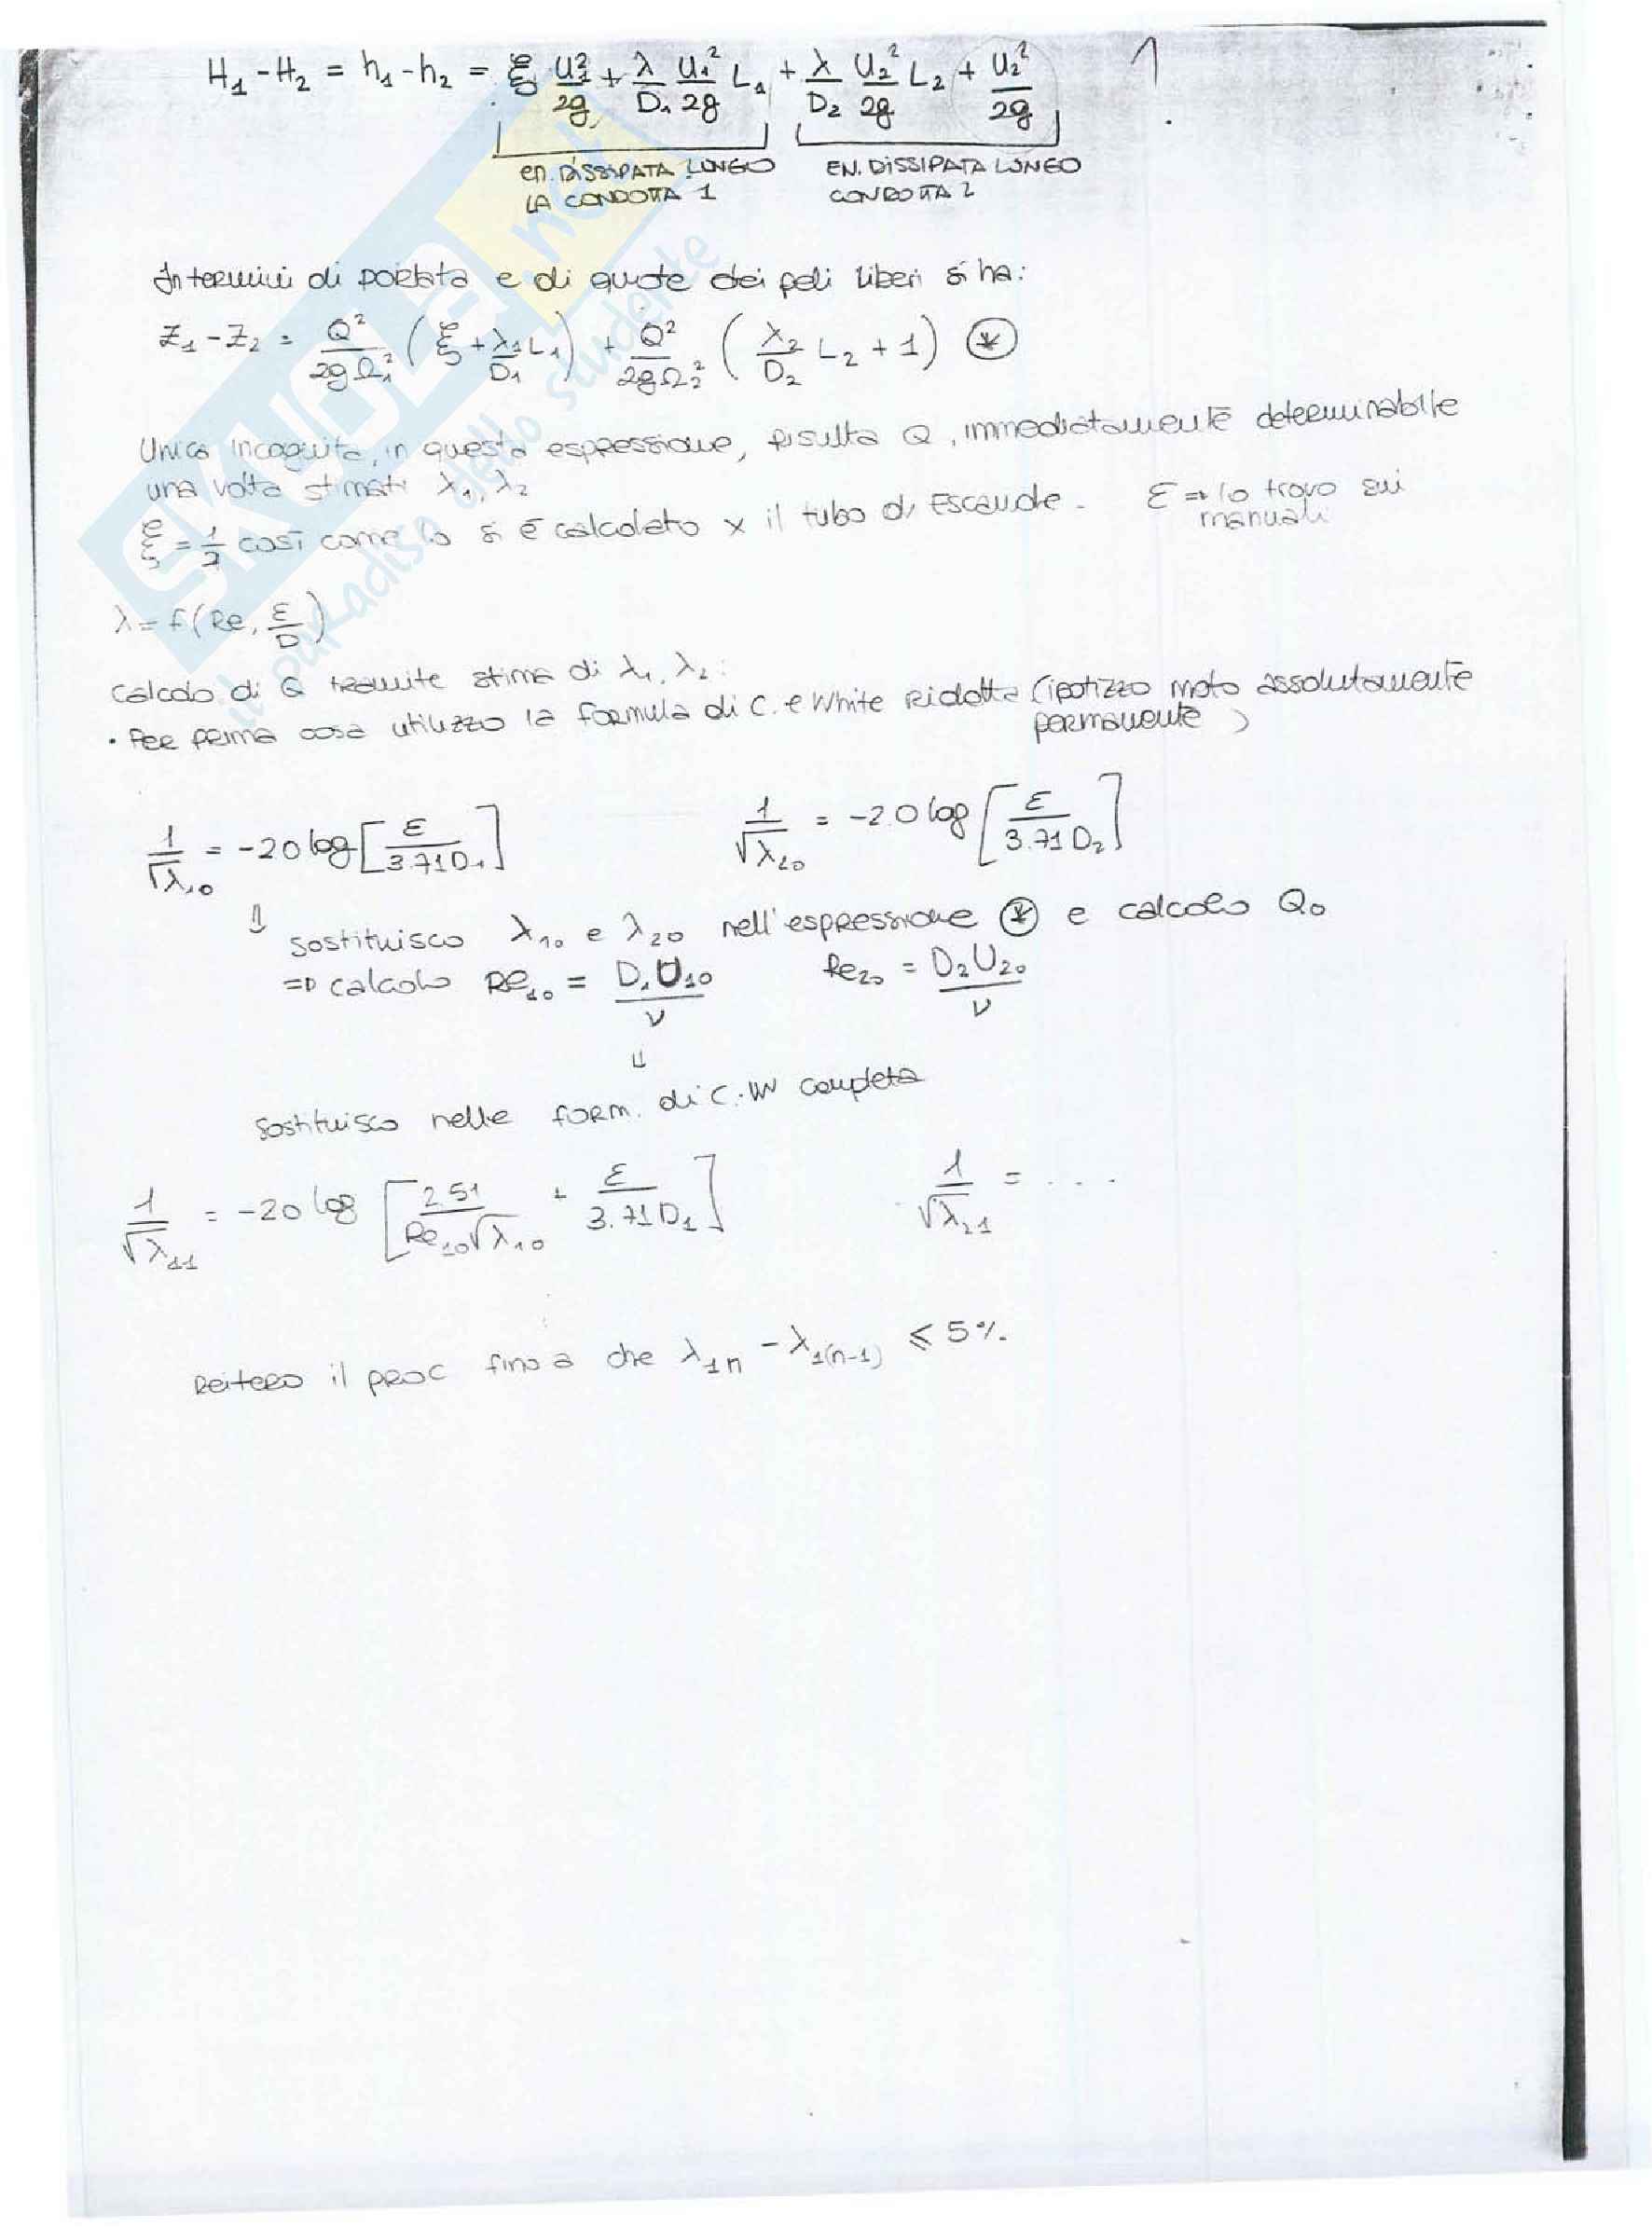 H₁ - H₂ = h₁ - h₂ = ξ U₁²/2g + λ/D₁ U₁²/2g L₁ + λ/D₂ U₂²/2g L₂ + U₂²/2g
EN. DISSIPATA LUNGO LA CONDOTTA 1
EN. DISSIPATA LUNGO CONDOTTA 2
1
In termini di portata e di quote dei peli liberi si ha:
Z₁ - Z₂ = Q²/2gΩ₁² (ξ + λ₁/D₁ L₁) + Q²/2gΩ₂² (λ₂/D₂ L₂ + 1) ⊛
Unica incognita, in questa espressione, risulta Q, immediatamente determinabile
una volta stimati λ₁, λ₂
ξ = 1/2 così come lo si è calcolato x il tubo di Escande. ε ⇒ lo trovo sui manuali
λ = f(Re, ε/D)
Calcolo di Q tramite stima di λ₁, λ₂:
• Per prima cosa utilizzo la formula di C. e White ridotta (ipotizzo moto assolutamente permanente)
1/√λ₁₀ = -2.0 log [ε/3.71D₁]
1/√λ₂₀ = -2.0 log [ε/3.71D₂]
⇓ sostituisco λ₁₀ e λ₂₀ nell'espressione ⊛ e calcolo Q₀
⇒ calcolo Re₁₀ = D₁U₁₀/ν Re₂₀ = D₂U₂₀/ν
⇓
Sostituisco nelle form. di C.W completa
1/√λ₁₁ = -2.0 log [2.51/Re₁₀√λ₁₀ + ε/3.71D₁]
1/√λ₂₁ = ....
Reitero il proc fino a che λ₁ₙ - λ₁₍ₙ₋₁₎ ⩽ 5%.
SKUOLA.net
il paradiso dello studente